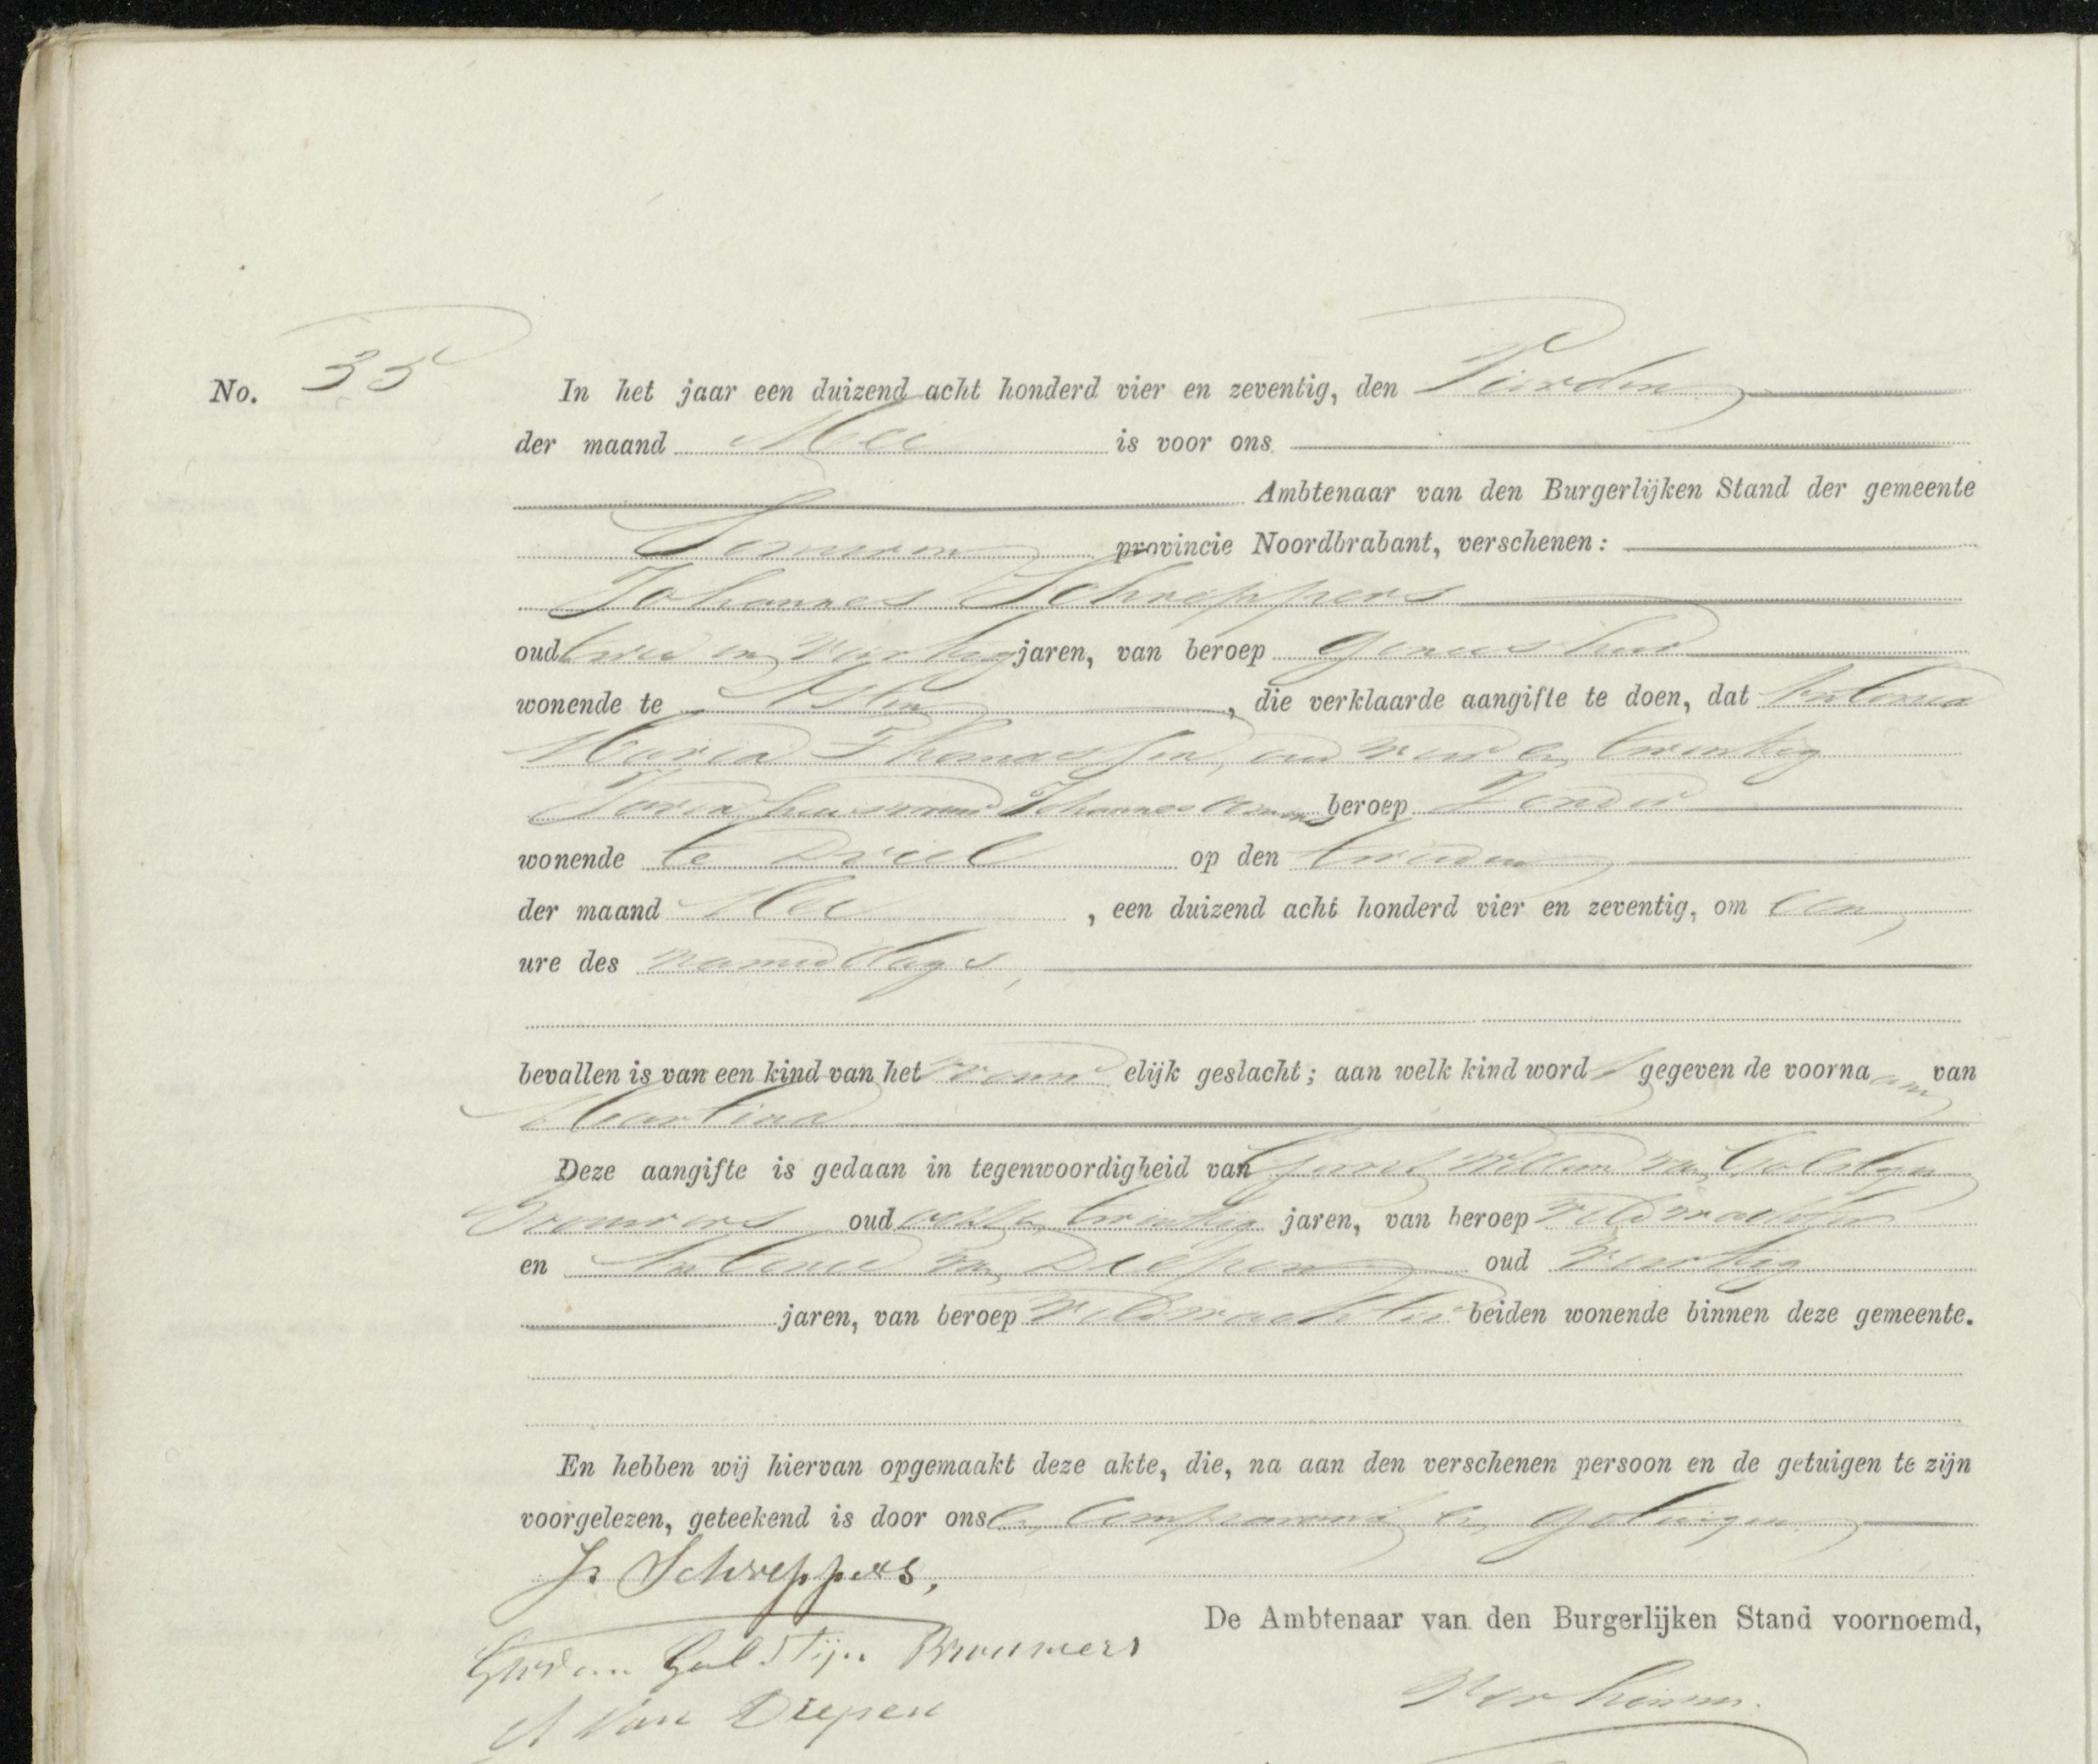 No. 35 In het jaar een duizend acht honderd vier en zeventig, den Vierden
der maand Mei is voor ons
Ambtenaar van den Burgerlijken Stand der gemeente
Someren provincie Noordbrabant, verschenen:
Johannes Schreppers
oud twee en veertig jaren, van beroep geneesheer
wonende te Asten, die verklaarde aangifte te doen, dat Antonia
Maria Thomassen, oud vier en twintig
Jaren, huisvrouw Johannes beroep Zonder
wonende te Driel op den tweeden
der maand Mei, een duizend acht honderd vier en zeventig, om een
ure des namiddags,
bevallen is van een kind van het vrouwelijk geslacht; aan welk kind wordt gegeven de voornaam van
Martina
Deze aangifte is gedaan in tegenwoordigheid van Gerrit Willem van Galstijn
Brouwers oud acht en twintig jaren, van beroep veldwachter
en Antonie van Diepen oud veertig
jaren, van beroep veldwachter beiden wonende binnen deze gemeente.
En hebben wij hiervan opgemaakt deze akte, die, na aan den verschenen persoon en de getuigen te zijn
voorgelezen, geteekend is door ons en comparant en getuigen
Js Schreppers,
De Ambtenaar van den Burgerlijken Stand voornoemd,
Galstijn Brouwers
A van Diepen